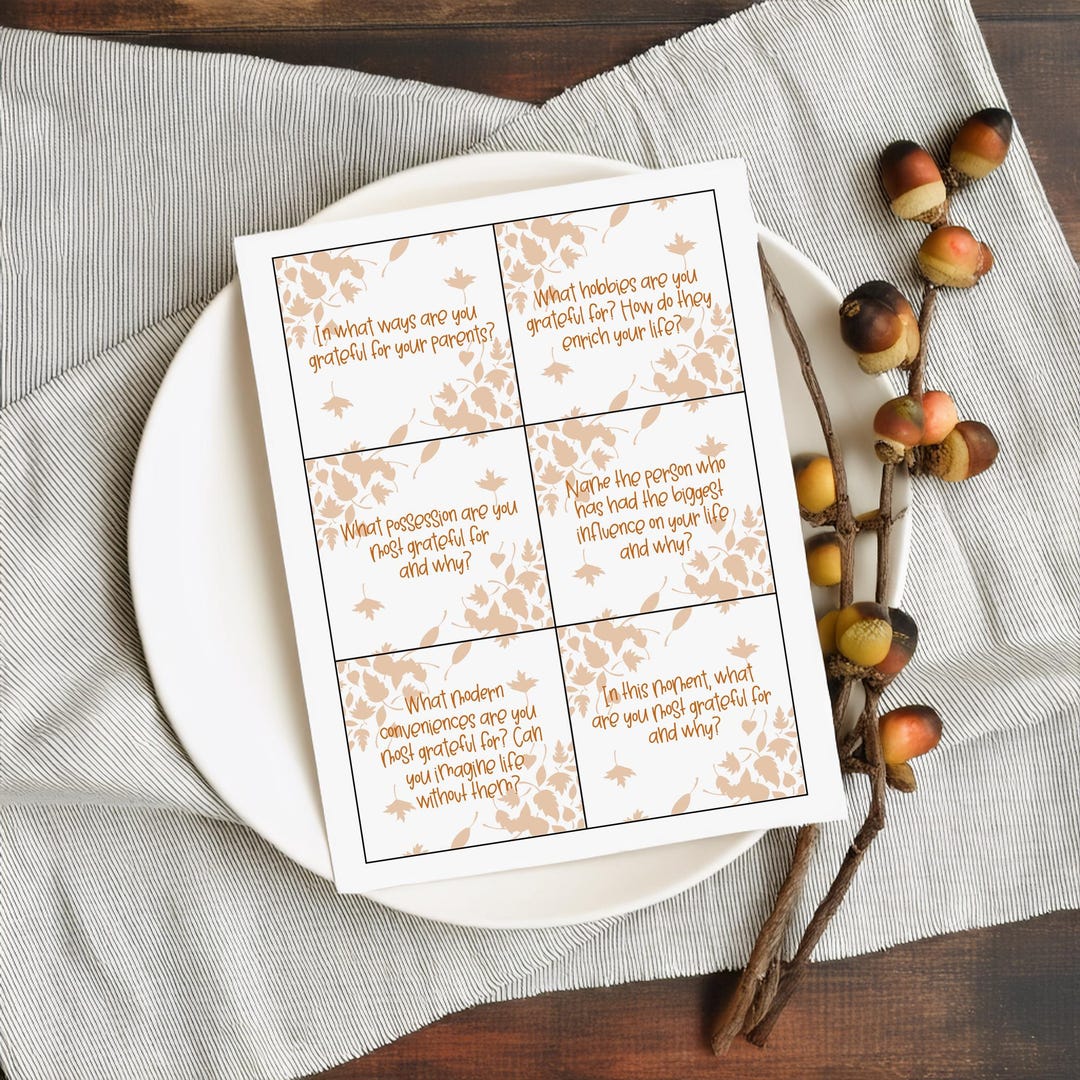 In what ways are you
grateful for your parents?
What hobbies are you
grateful for? How do they
enrich your life?
What possession are you
most grateful for
and why?
Name the person who
has had the biggest
influence on your life
and why?
What modern
conveniences are you
most grateful for? Can
you imagine life
without them?
In this moment, what
are you most grateful for
and why?